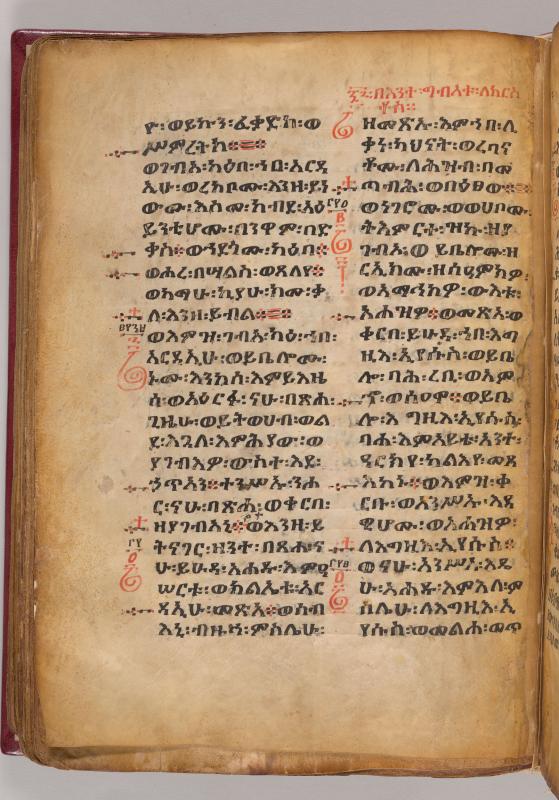 ዮ፡ወይኩን፡ፈቃድከ፡ወ
ሥምረትከ፨
ወገብአ፡ካዕበ፡ኀበ፡አርዳ
ኢሁ፡ወረከቦሙ፡እንዘ፡ይነ
ውሙ፡እስመ፡ከብደ፡አዕ
ይንቲሆሙ፡በንዋም፡በድ
ቃስ፨ወኀደጎሙ፡ካዕበ፨
ወሖረ፡በሣልስ፡ወጸለየ፨
ወከማሁ፡ኪያሁ፡ከመ፡ቃ
ለ፡እንዘ፡ይብል፨
ወእምዝ፡ገብአ፡ካዕ፡ኀበ፡
አርዳኢሁ፡ወይቤሎሙ፡
ኑሙ፡እንከሰ፡እምይእዜ
ሰ፡ወአዕርፉ፡ናሁ፡በጽሐ፡
ጊዜሁ፡ወይትወሀብ፡ወል
ደ፡እጓለ፡እምሕያው፡ወ
ያገብእዎ፡ውስተ፡እደ፡
ኃጥኣን፨ተንሥኡ፡ንሖ
ር፡ናሁ፡በጽሐ፡ወቀርበ፡
ዘያገብአኒ፨ወእንዘ፡ይ
ትናገር፡ዘንተ፡በጽሐ፡ና
ሁ፡ይሁዳ፡አሐዱ፡እምዐ
ሠርቱ፡ወክልኤቱ፡አር
ዳኢሁ፡መጽአ፨ወሰብ
እኒ፡ብዙኅ፡ምስሌሁ፡
በእንተ፡ግብአቱ፡ለክርስ
ቶስ፨
ዘመጽኡ፡እምኀበ፡ሊ
ቃነ፡ካህናት፡ወረበና
ቶሙ፡ለሕዝብ፡በመ
ጣብሕ፡ወበዕፀው፨
ወነገሮሙ፡ወወሀቦሙ፡
ትእምርተ፡ዝኩ፡ዘያ
ገብኦ፡ወይቤሎሙ፡ዘ
ርኢክሙ፡ዘሰዓምክዎ፡
ወአማኅክዎ፡ውእቱ፡
አሐዝዎ፨ወመጽአ፡ወ
ቀርበ፡ይሁዳ፡ኀበ፡እግ
ዚእ፡ኢየሱስ፡ወይቤ
ሎ፡ባሕ፡ረቢ፡ወአም
ኆ፡ወሰዐሞ፨ወይቤ
ሎ፡እግዚእ፡ኢየሱስ፡
ባሕ፡እምአይቱ፡አንተ፡
ዓርክየ፡ካልእየ፡መጻ
እከኑ፨ወእምዝ፡ቀ
ርቡ፡ወአንሥኡ፡እደ
ዊሆሙ፡ወአሐዝዎ፡
ለእግዚእ፡ኢየሱስ፨
ወናሁ፡አንሥአ፡እዴ
ሁ፡አሐዱ፡እምእለ፡ም
ስሌሁ፡ለእግዚእ፡ኢ
የሱስ፡ወመልሐ፡መጥ